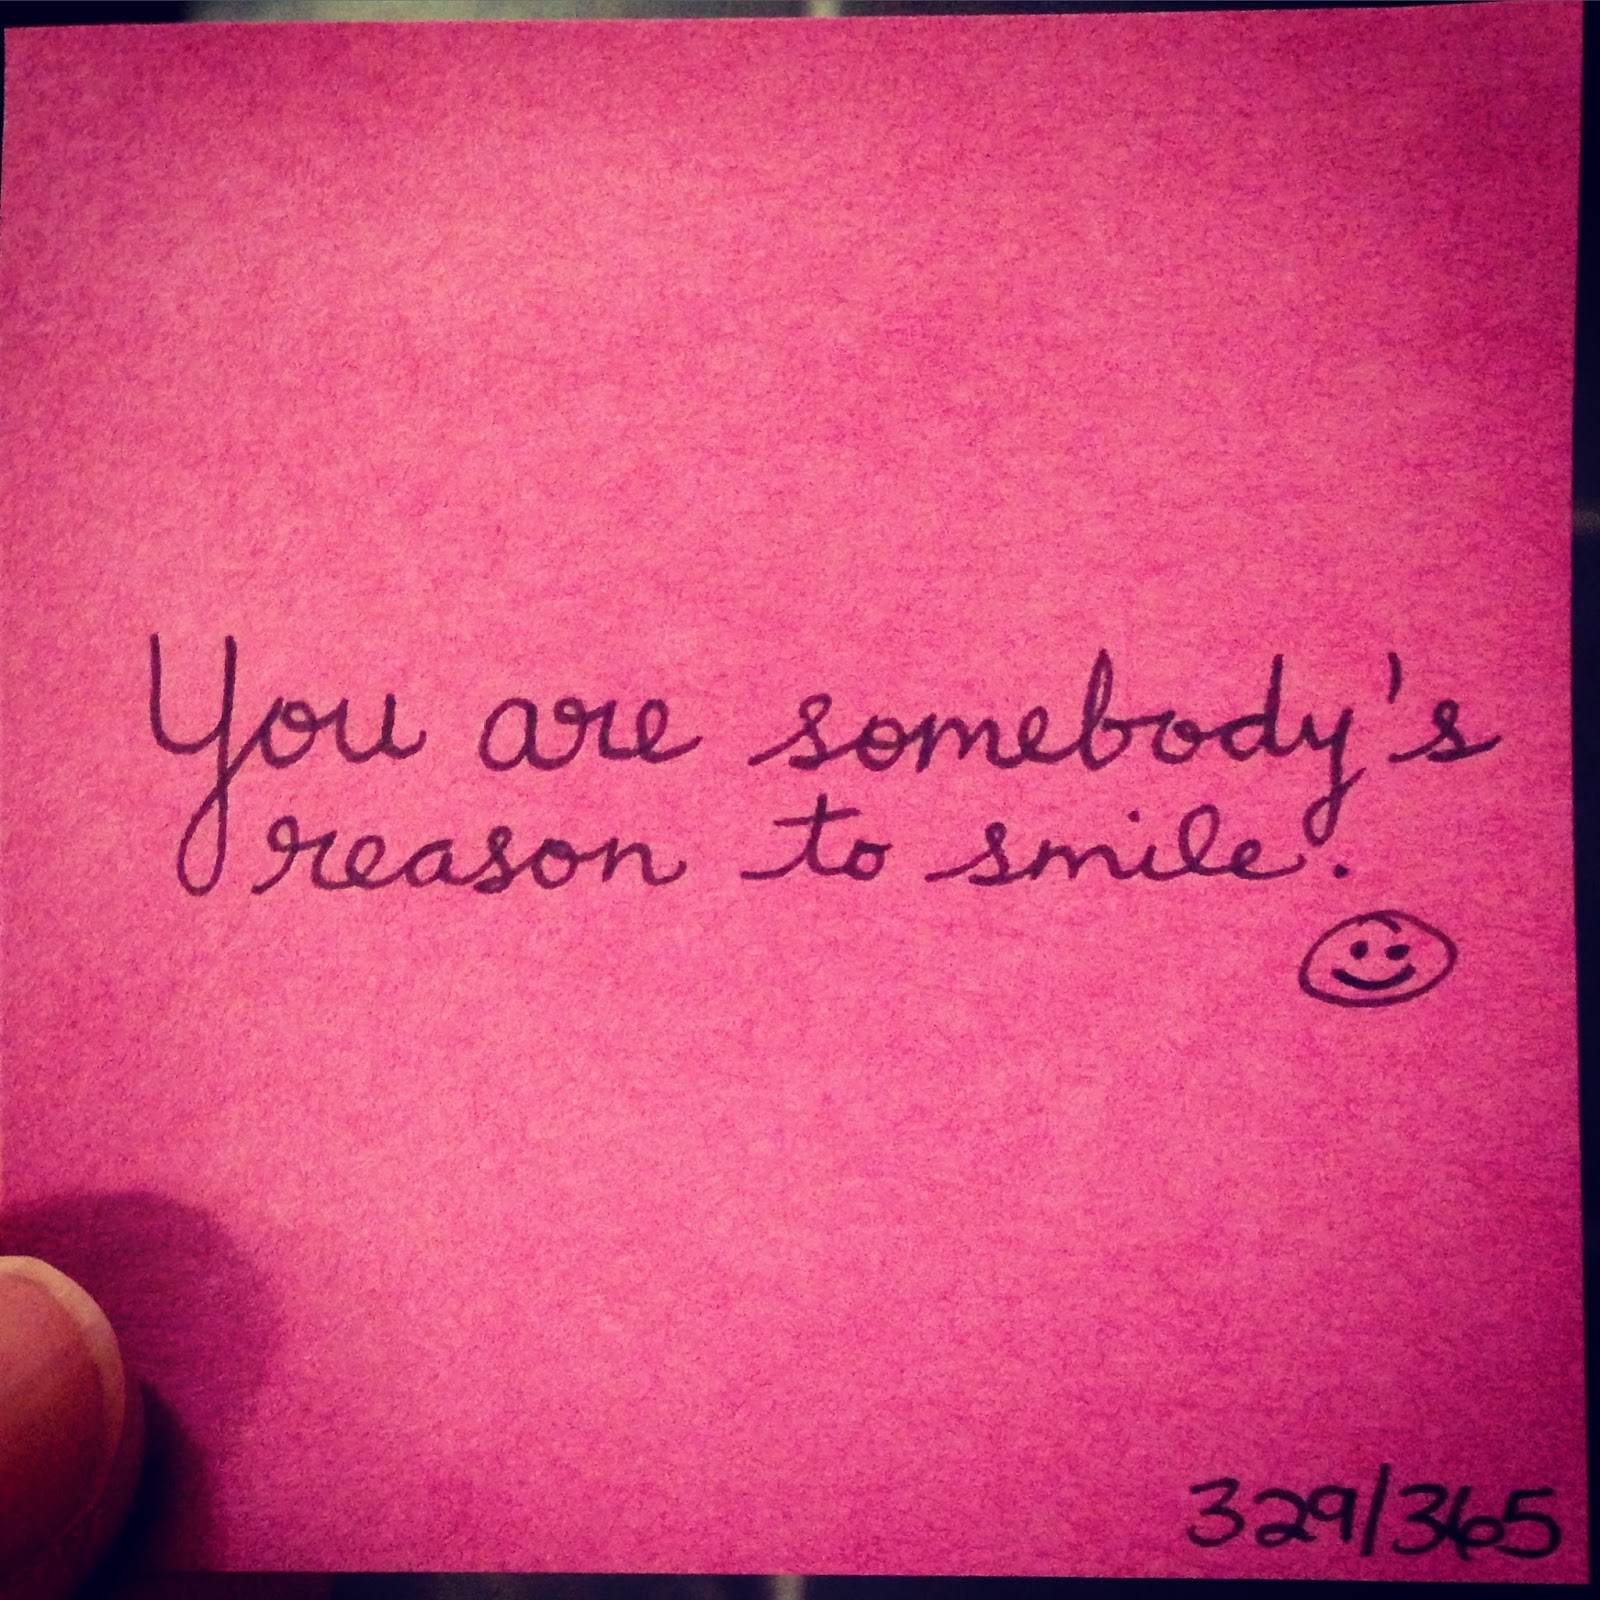 You are somebody's
reason to smile.
329/365